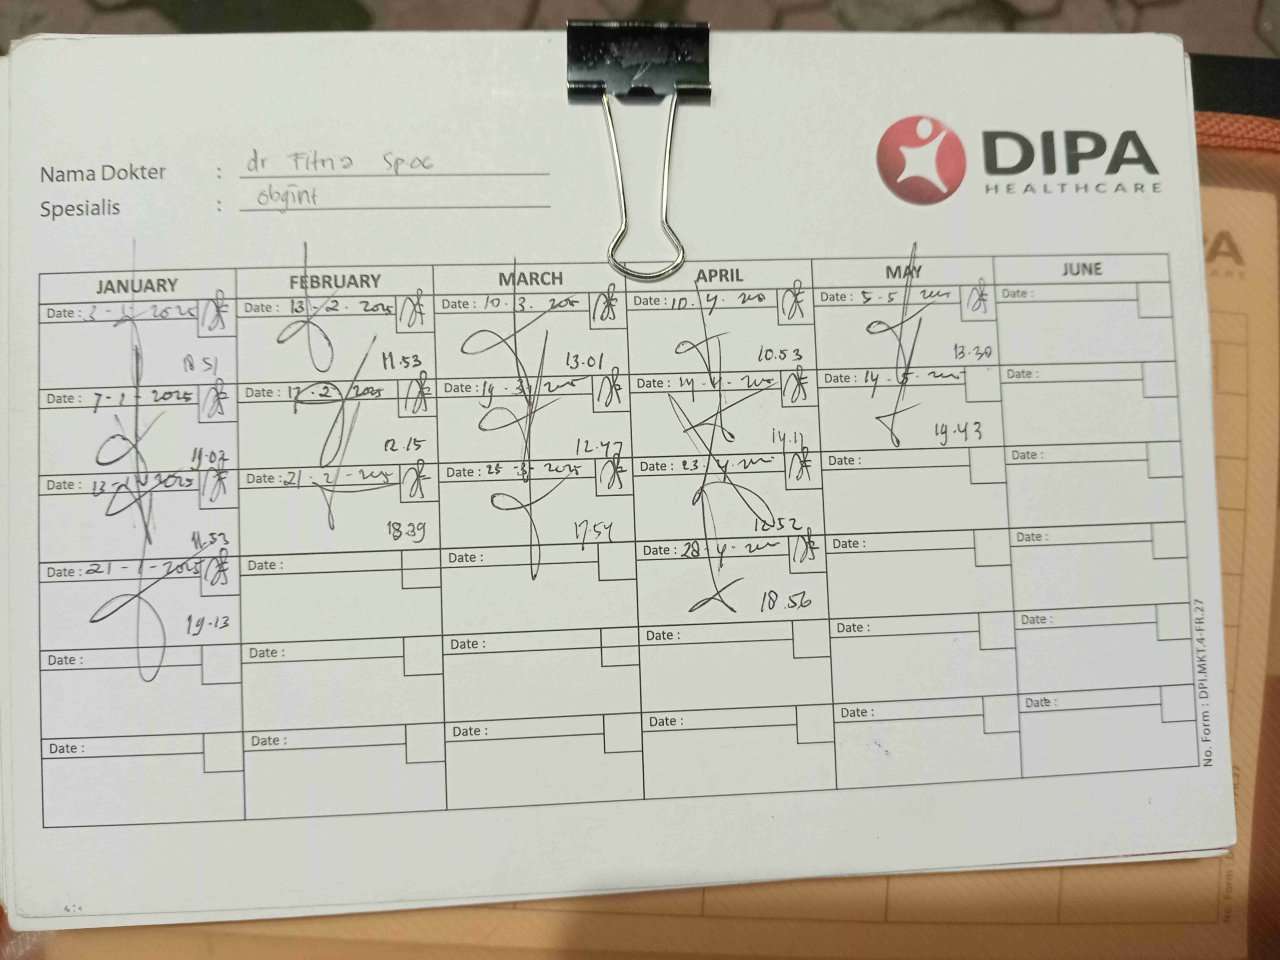 DIPA
HEALTHCARE
Nama Dokter : dr Fitna Spog
Spesialis : obgint
JANUARY FEBRUARY MARCH APRIL MAY JUNE
Date : 3-1-2025 Date : 13-2-2025 Date : 10.3. Date : 10.4. Date : 5-5 Date :
18.51 11.53 13.01 10.53 13.30
Date : 7-1-2025 Date : 17.2.2025 Date : 19.3. Date : 14.4. Date : 14.5. Date :
19.02 12.15 12.47 14.17 19.43
Date : 13-1-2025 Date : 21-2- Date : 25-3-2025 Date : 23.4. Date : Date :
11.53 18.39 17.54 12.52
Date : 21-1-2025 Date : Date : Date : 28.4. Date : Date :
19.13 18.56
Date : Date : Date : Date : Date : Date :
Date : Date : Date : Date : Date : Date :
No. Form : DPI.MKT.4-FR.27